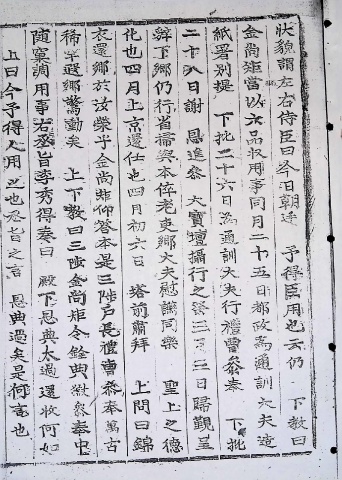 狀貌謂左右侍臣曰今日朝廷 予得臣用也云仍 下敎曰
金尙矩當以六品收用事同月二十五日都政爲通訓大夫造
紙署別提 下批二十六日爲通訓大夫行禮曹參奉 下批
二十八日謝 恩進參 大寶壇攝行之祭三月三日歸覲呈
辭下鄕仍行省掃與本倅老吏鄕大夫慰讌同樂 聖上之德
化也四月上京還仕也四月初六日 塔前肅拜 上問曰錦
衣還鄕於汝榮乎金尙矩仰答本是三陟戶長禮曹參奉萬古
稀罕遐鄕驚動矣 上下敎曰三陟金尙矩令 典 奉中
隨窠調用事右丞旨李秀得奏曰 殿下恩典太過還收何如
上曰今予得人用之也丞旨之言 恩典過矣是何言也